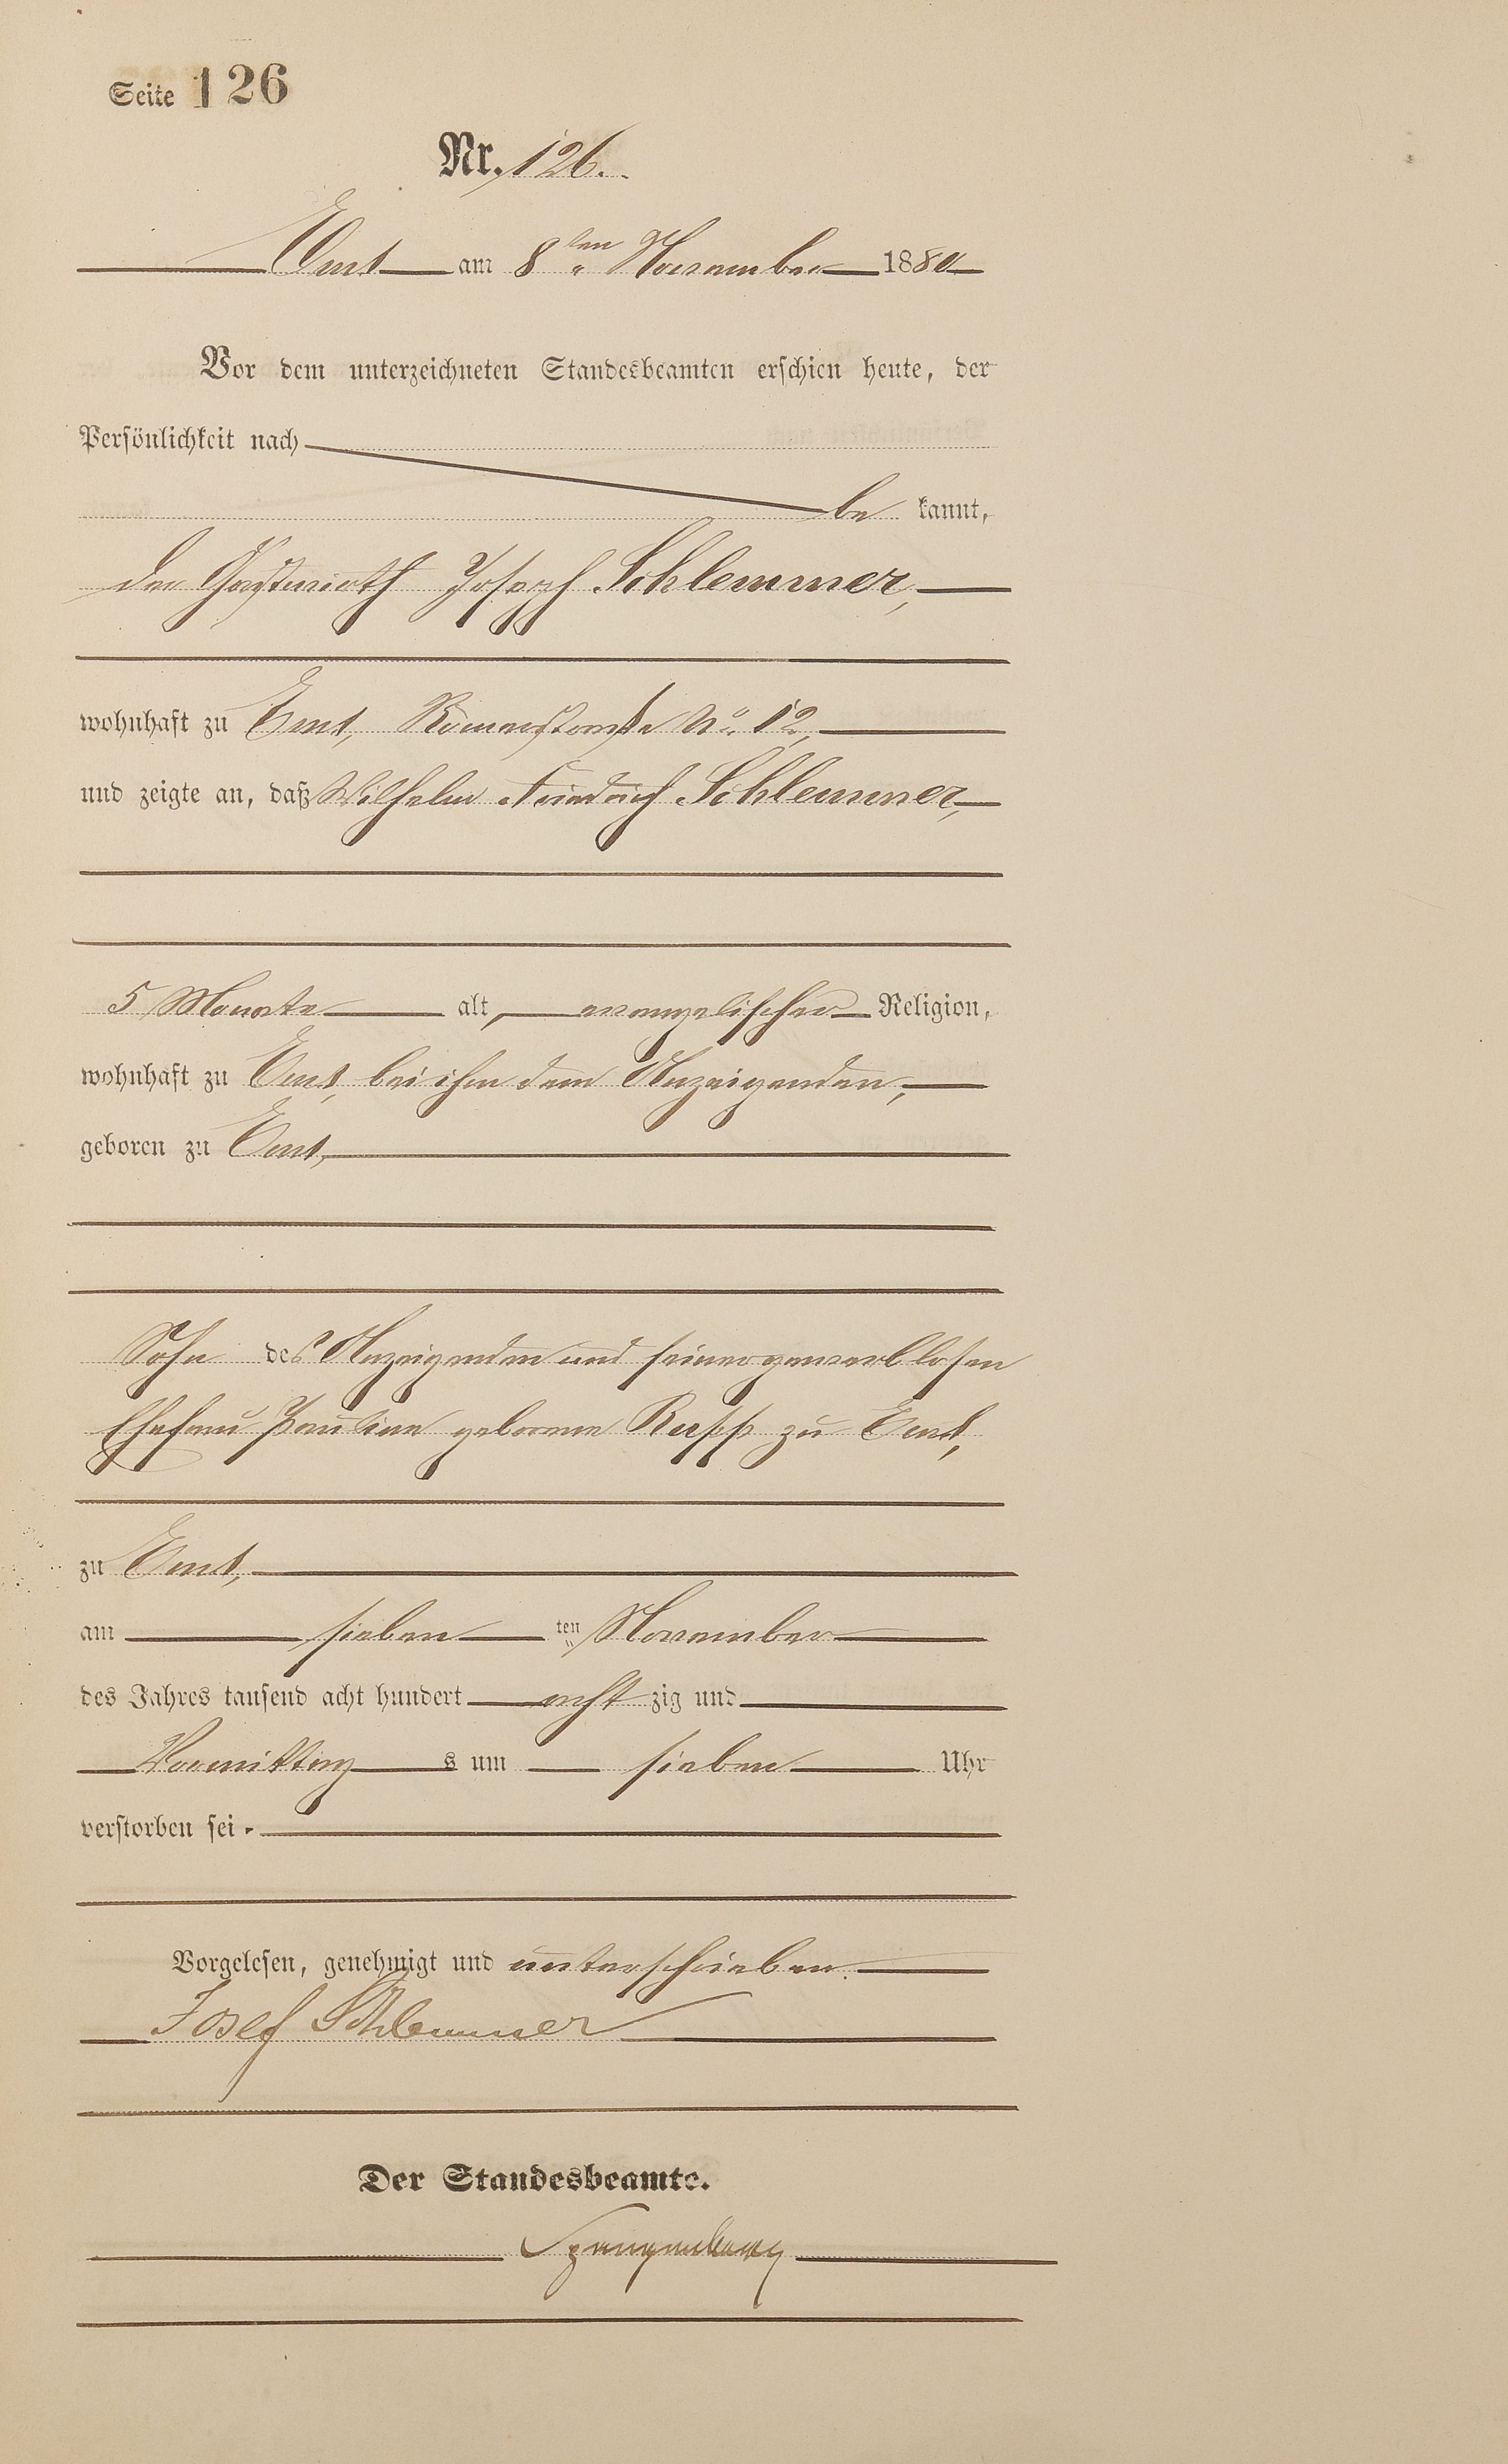 Seite 126
Nr. 126.
Ems am 8ten November 1880
Vor dem unterzeichneten Standesbeamten erschien heute, der
Persönlichkeit nach
be kannt,
der Gastwirth Joseph Schlemmer,
wohnhaft zu Ems, Römerstraße No. 12,
und zeigte an, daß Wilhelm Friedrich Schlemmer,
5 Monate alt, evangelischer Religion,
wohnhaft zu Ems, bei ihm dem Anzeigenden,
geboren zu Ems,
Sohn des Anzeigenden und seiner gewerblosen
Ehefrau Pauline geborene Rupp zu Ems,
zu Ems,
am sieben ten November
des Jahres tausend acht hundert acht zig und
Vormittag s um sieben Uhr
verstorben sei.
Vorgelesen, genehmigt und unterschrieben.
Josef Schlemmer
Der Standesbeamte.
Spangenberg